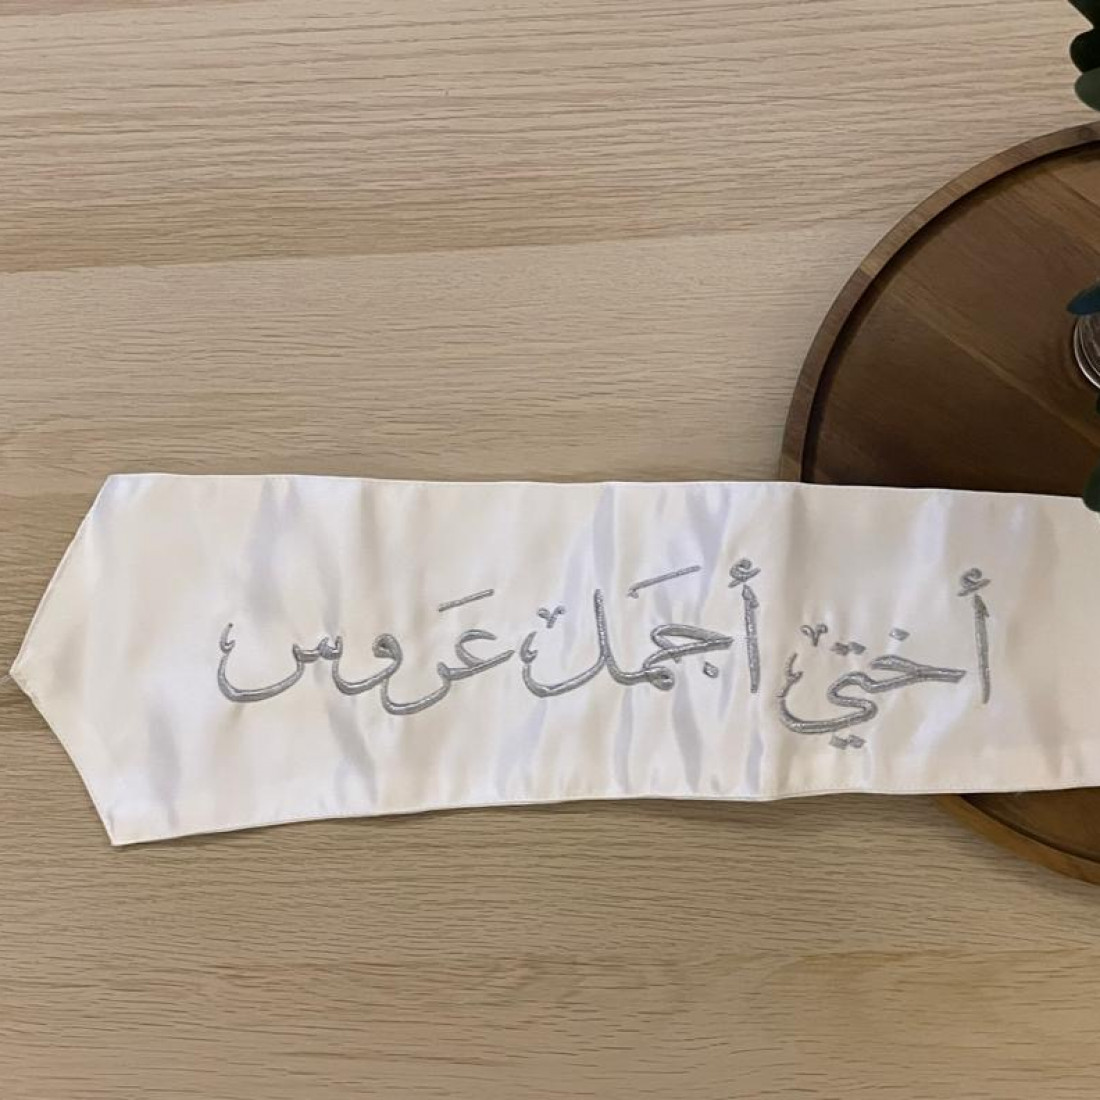 أختي أجمل عروس